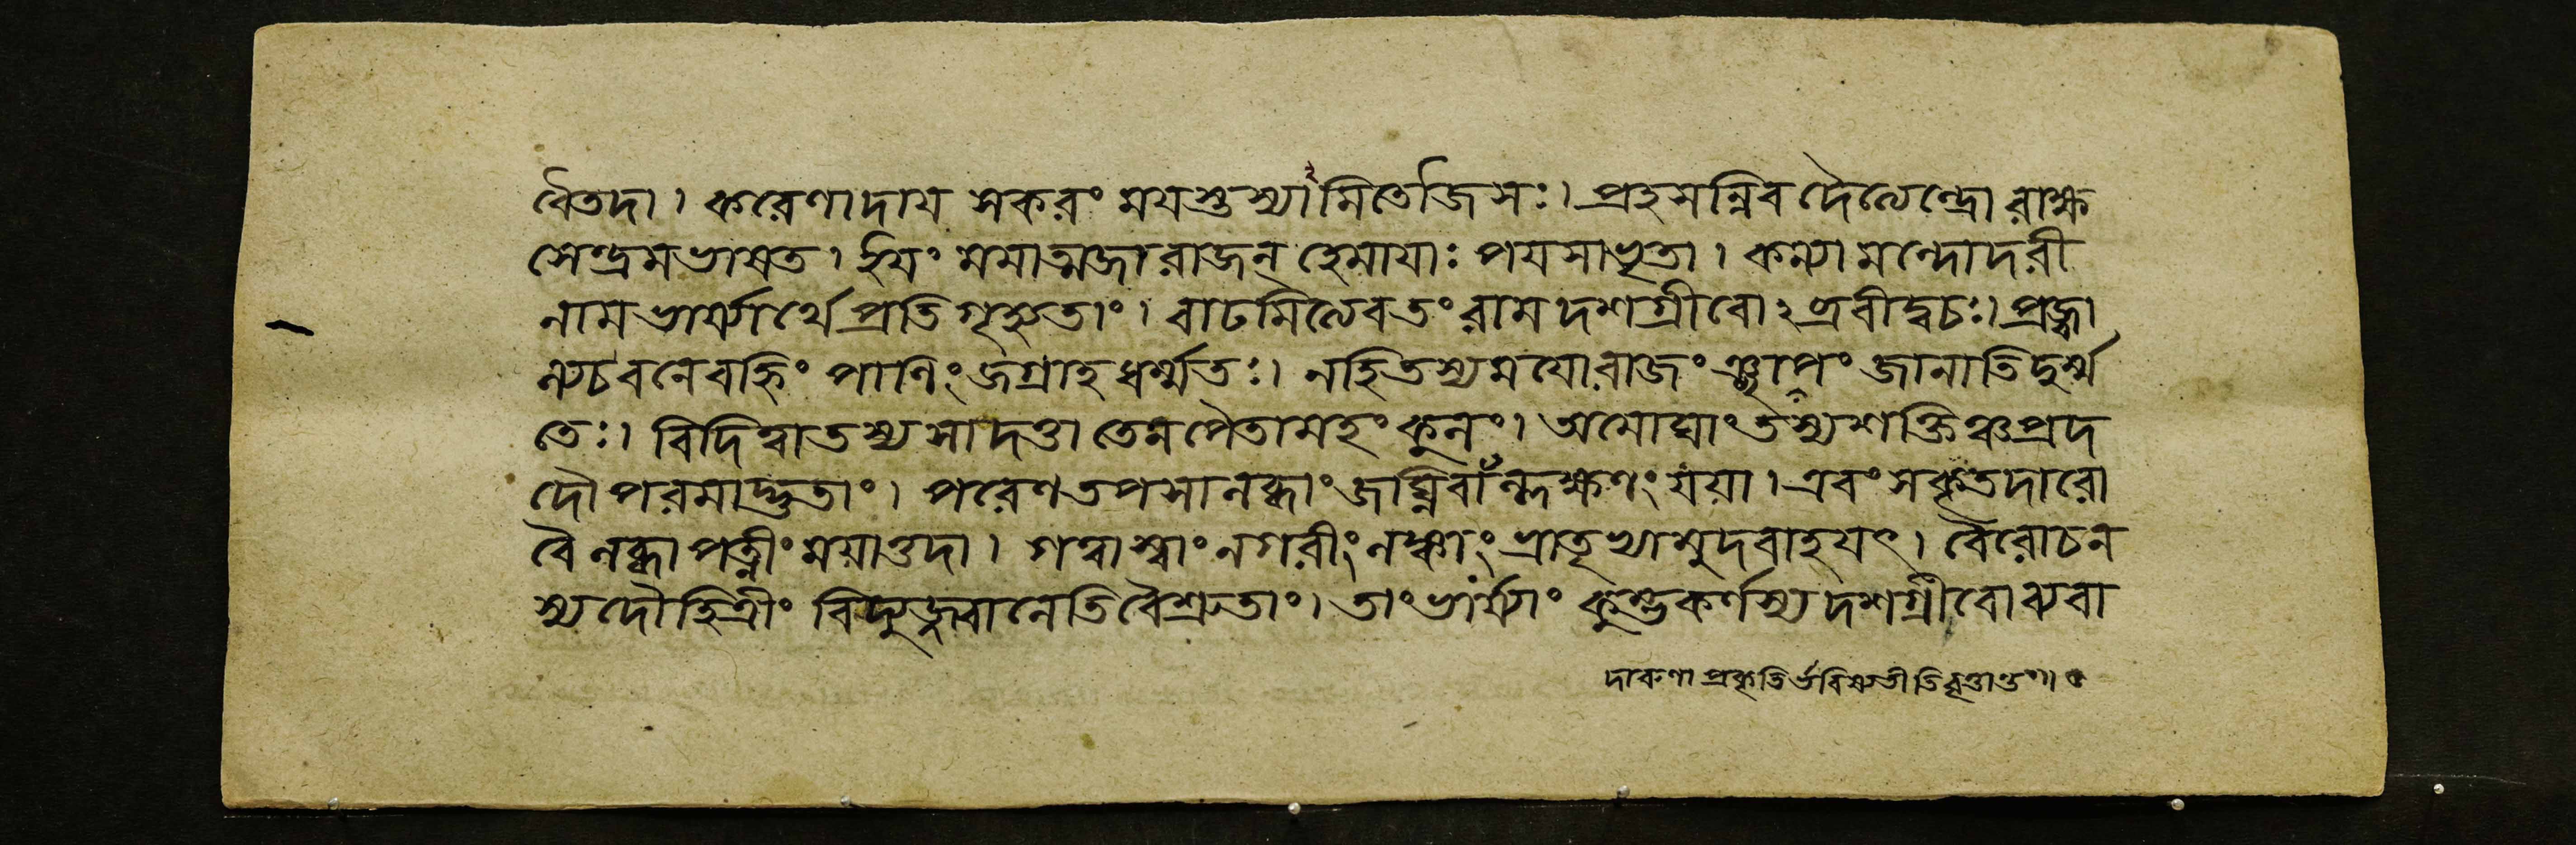 বৈতদা। করেণাদায সকরং মযশুস্থামিতৌজসঃ। প্রহসন্নিব দৈত্যেন্দ্রো রাক্ষ
সেন্দ্রমভাষত। ইযং মমাত্মজা রাজন্ হেমাযাঃ পযসাভৃতা। কন্যা মন্দোদরী
নাম ভার্য্যার্থে প্রতিগৃহ্যতাং। বাঢমিত্যেবতং রাম দশগ্রীবোঽব্রবীদ্বচঃ। প্রজ্বা
ল্যচবনে বহ্নিং পাণিং জগ্রাহ ধর্ম্মতঃ। নহি তস্য মযো রাজং জানাতি দুর্ম্ম
তেঃ। বিদিত্বা তস্য সা দত্তা তেন পৈতামহং কুলং। অমোঘাং তস্য শক্তিঞ্চ প্রদ
দৌ পরমাদ্ভুতাং। পরেণ তপসা লব্ধাং জঘ্নিবাঁল্লক্ষ্মণং যযা। এবং স কৃতদারো
বৈ লঙ্কা পত্নীং তদা। গত্বা স্বাং নগরীং লঙ্কাং মুদবাহযৎ। বৈরোচন
স্য দৌহিত্রীং বিদ্যুজ্জ্বালেতি বৈশ্রুতাং। তাং ভার্য্যাং কুম্ভকর্ণস্য দশগ্রীবো ব্যবা
দারুণা প্রকৃতি